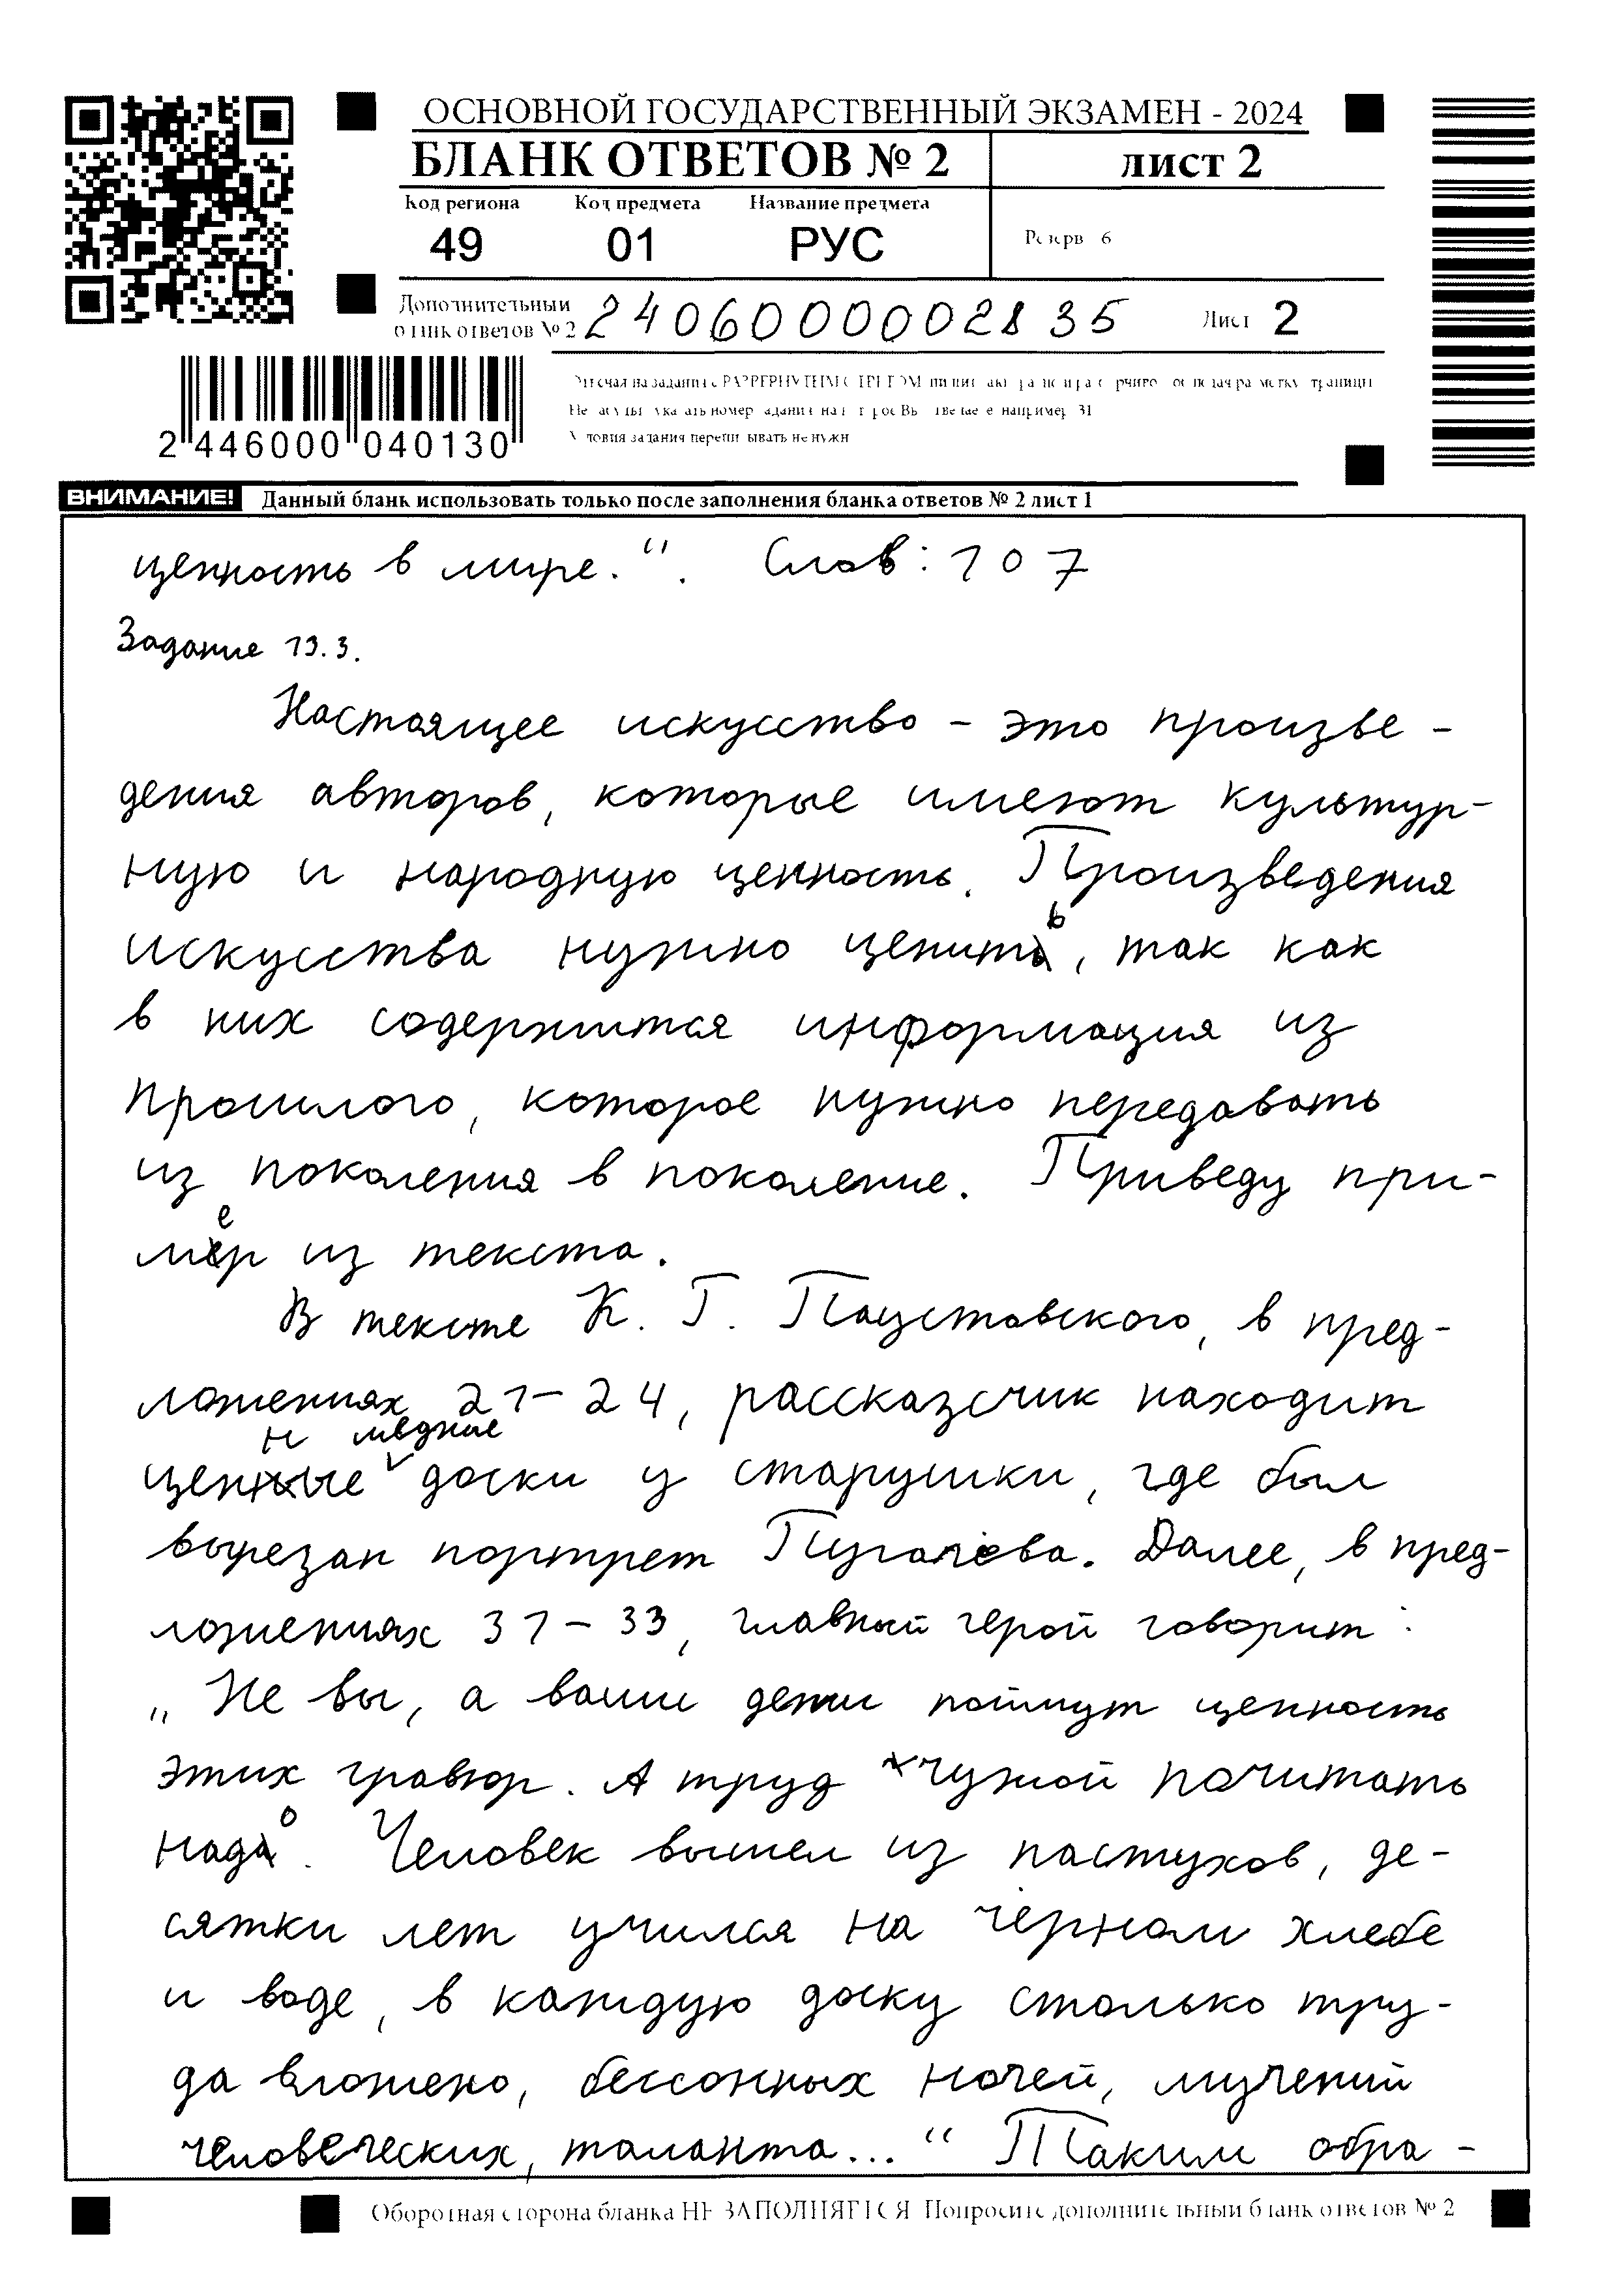 ОСНОВНОЙ ГОСУДАРСТВЕННЫЙ ЭКЗАМЕН - 2024
БЛАНК ОТВЕТОВ № 2
ЛИСТ 2
Код региона Код предмета Название предмета
49 01 РУС
Резерв 6
Дополнительный
бланк ответов № 2
2406000002835
Лист 2
2 446000 040130
Условия задания переписывать не нужно
ВНИМАНИЕ! Данный бланк использовать только после заполнения бланка ответов № 2 лист 1
ценность в мире.“. Слов: 107
Задание 13.3.
Настоящее искусство - это произве-
дения авторов, которые имеют культур-
ную и народную ценность. Произведения
искусства нужно ценить, так как
в них содержится информация из
прошлого, которое нужно передавать
из поколения в поколение. Приведу при-
мер из текста.
В тексте К. Г. Паустовского, в пред-
ложениях 21-24, рассказсчик находит
ценные медные доски у старушки, где был
вырезан портрет Пугачёва. Далее, в пред-
ложениях 31-33, главный герой говорит:
„Не вы, а ваши дети поймут ценность
этих гравюр. А труд чужой почитать
надо. Человек вышел из пастухов, де-
сятки лет учился на чёрном хлебе
и воде, в каждую доску столько тру-
да вложено, бессонных ночей, мучений
человеческих, таланта...“ Таким обра-
Оборотная сторона бланка НЕ ЗАПОЛНЯЕТСЯ Попросите дополнительный бланк ответов № 2